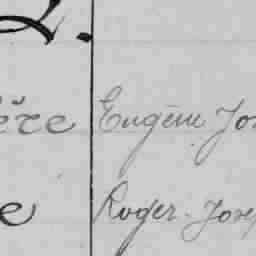 ère Eugène Jos
e Roger Josep